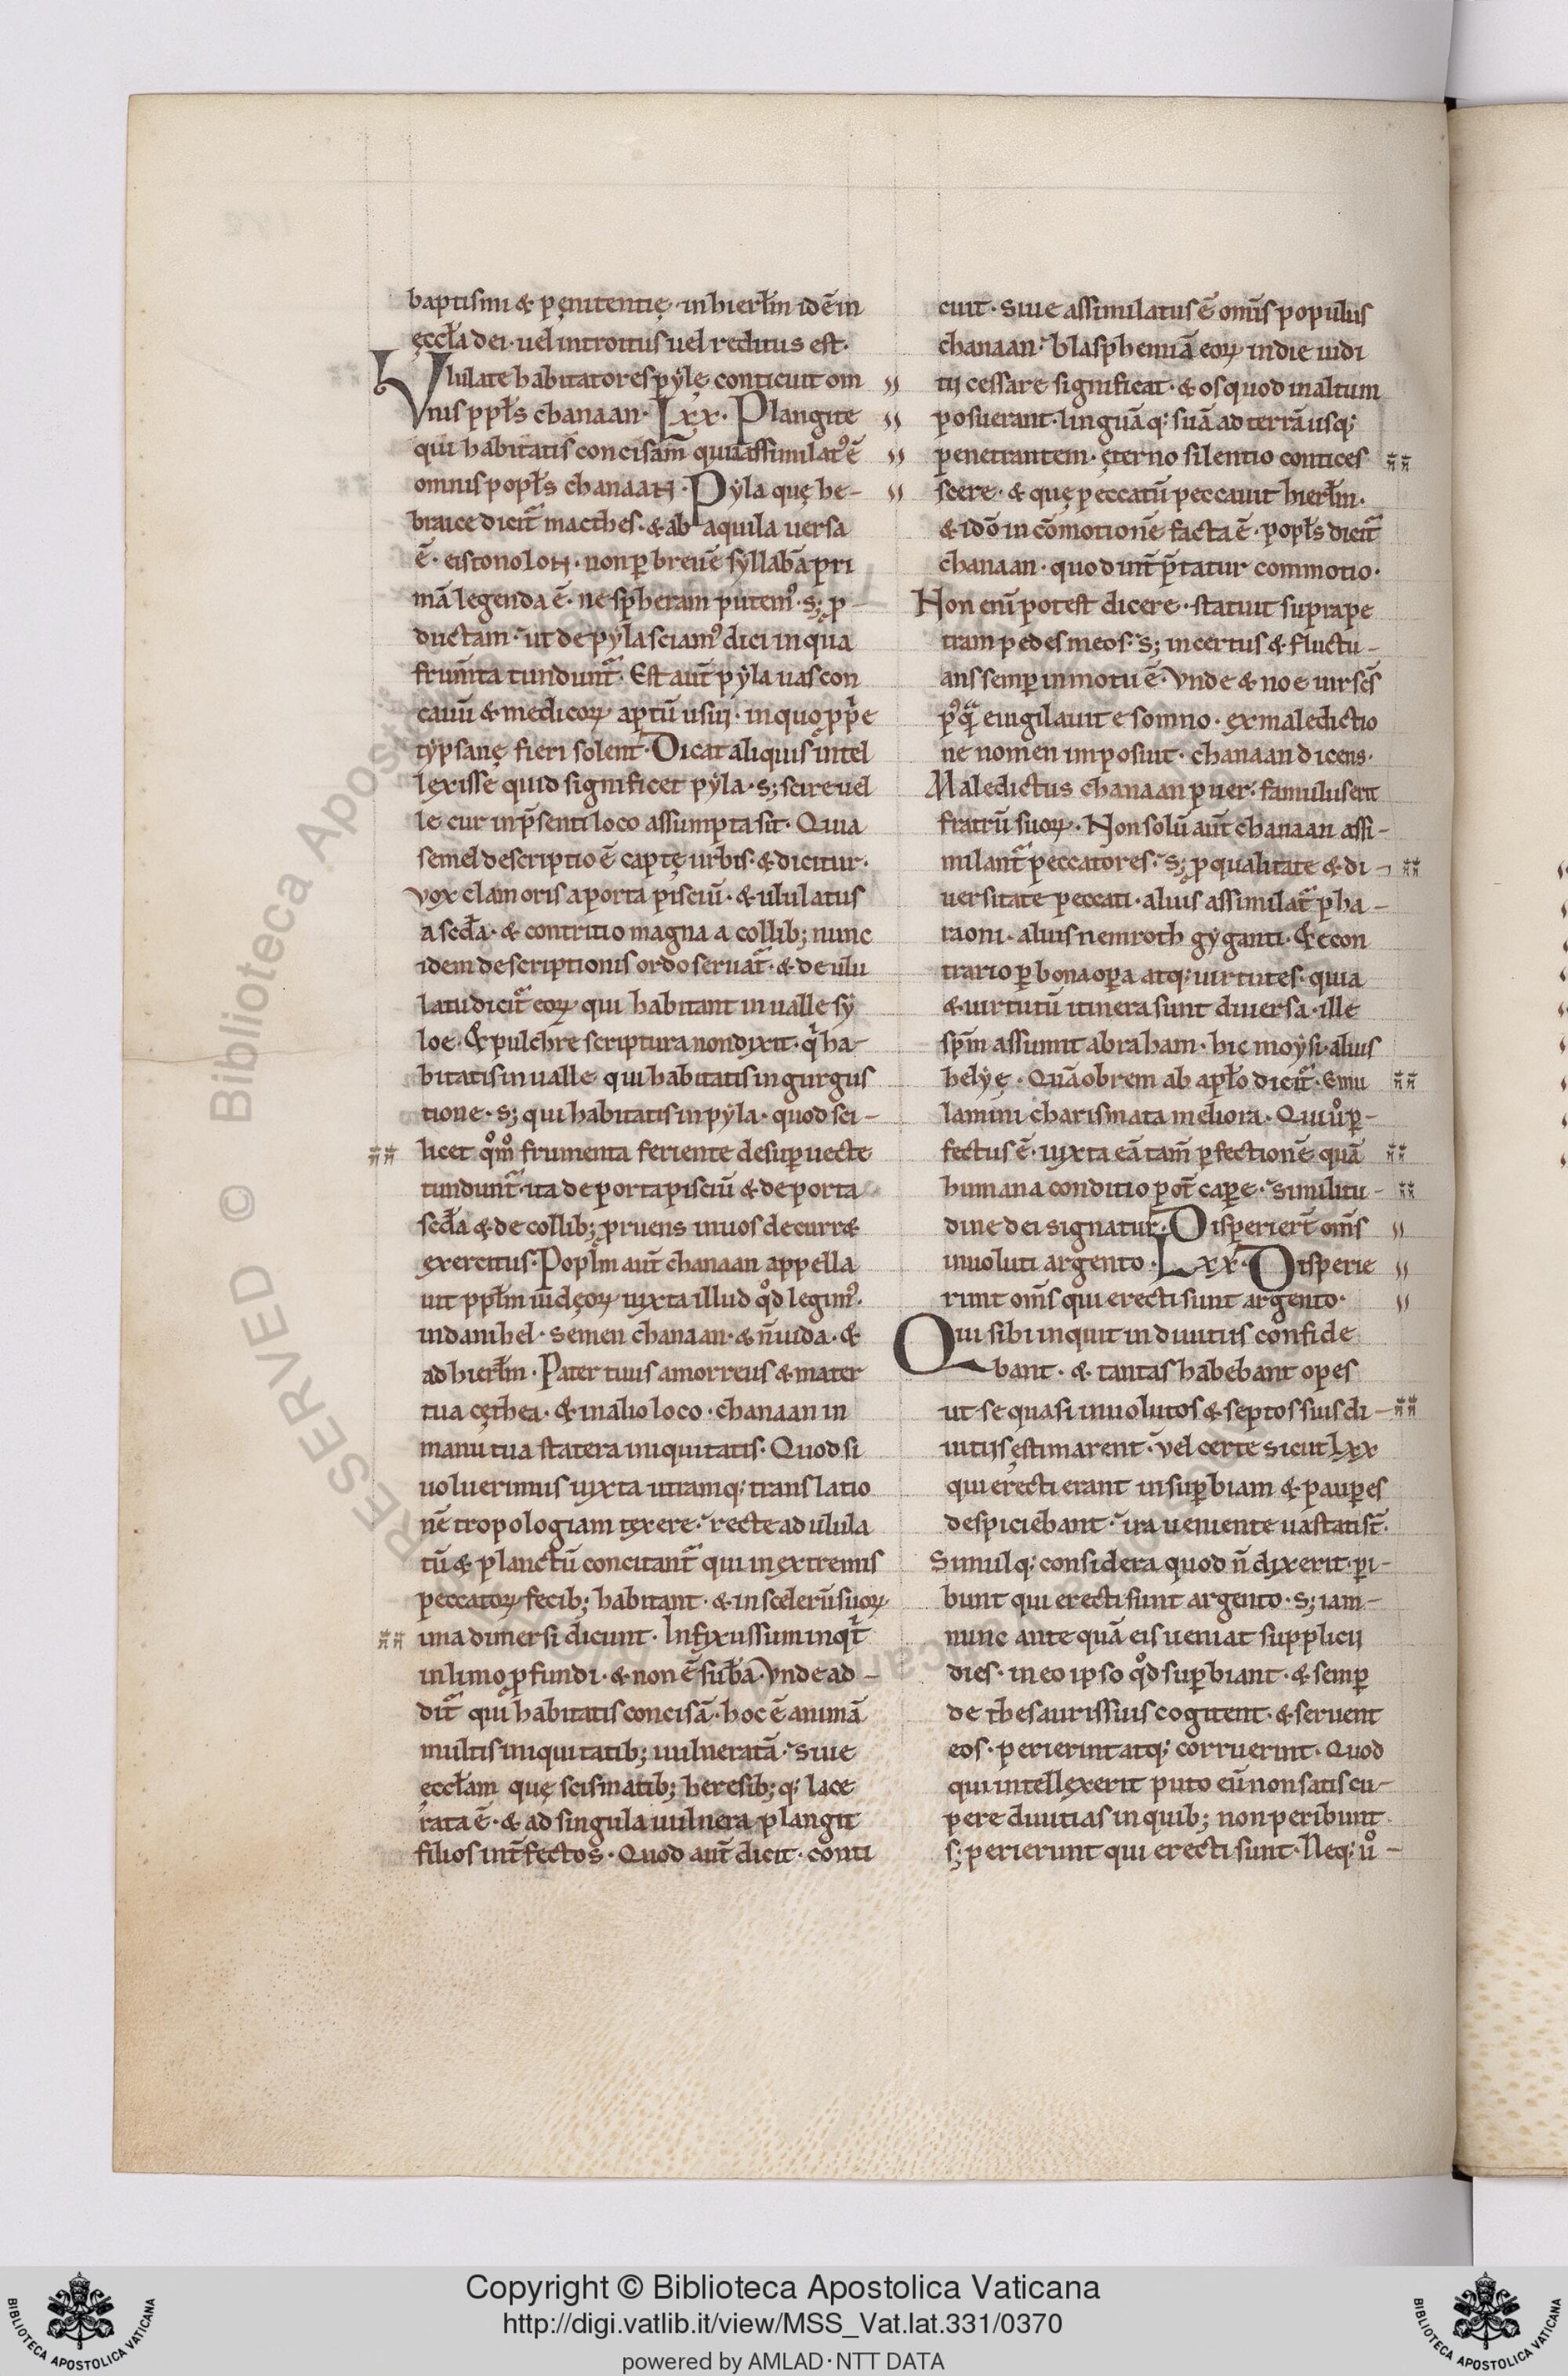 baptismi & pęnitentię · in hierłm idē in
ęccła dei · uel introitus uel reditus est ·
Vlulate habitatores pẏlę conticuit om
nis ppłs chanaan · Lxx · Plangite
qui habitatis concisam̄ quia assimilat᾿ ē
omnis popłs chanaaN · Pẏla quę he-
braice dicit̃ macthes · & ab aquila uersa
ē · eistonoloN · non ꝑ breuē sẏllabā pri
mā legenda ē · ne spheram putem᾿ · s; ꝓ-
ductam · ut de pẏla sciam᾿ dici in qua
frum̄ta tundunt̃ · Est aut̄ pẏla uas con
cauū & medicoꝝ aptū usui · in quo ꝓpͥe
tẏpsanę fieri solent · Dicat aliquis intel
lexisse quid significet pẏla · s; scire uel
le cur in p̄senti loco assumpta sit · Quia
semel descriptio ē captę urbis · & dicitur ·
vox clamoris a porta pisciū · & ululatus
a scđa · & contritio magna a collib; nunc
idem descriptionis ordo seruat̃ · & de ulu
latu dicit̃ eoꝝ qui habitant in ualle sẏ
loe · & pulchre scriptura non dixit · qͥ ha-
bitatis in ualle qui habitatis in gurgus
tione · s; qui habitatis in pẏla · quod sci-
licet qͦmͦ frumenta feriente desuꝑ uecte
tundunt̃ · ita de porta pisciū & de porta
scđa & de collib; ꝓruens in uos decurr&
exercitus · Popłm aut̄ chanaan appella
uit ppłm iudęoꝝ iuxta illud qͦd legim᾿ ·
in danihel · Semen chanaan · & n̄ iuda · &
ad hierłm · Pater tuus amorreus & mater
tua cęthea · & in alio loco · chanaan in
manu tua statera iniquitatis · Quod si
uoluerimus iuxta utramq; translatio
nē tropologiam texere · recte ad ulula
tū & planctū concitant̃ qui in extremis
peccatoꝝ fecib; habitant · & in scelerū suoꝝ
ima dimersi dicunt · Infixus sum inqͥt
in limo ꝓfundi · & non ē sub̄a · Vnde ad-
dit̃ qui habitatis concisā · hoc ē animā
multis iniquitatib; uulneratā · siue
ęccłam quę scismatib; heresib; q; lace
rata ē · & ad singula uulnera plangit
filios int̄fectos · Quod aut̄ dicit · conti
cuit · siue assimilatus ē om̄is populus
chanaan · blasphemiā eoꝝ in die iudi
tij cessare significat · & os quod in altum
posuerant · linguā q; suā ad terrā usq;
penetrantem · ęterno silentio contices
scere · & quę peccatū peccauit hierłm ·
& idō in cōmotionē facta ē · popłs dicit̃
chanaan · quod int̄p̄tatur commotio ·
Non eni potest dicere · statuit supra pe
tram pedes meos · s; incertus & fluctu-
ans semꝑ in motu ē · Vnde & noe uir scs̄
p᾿qͣ euigilauit e somno · ex maledictio
ne nomen imposuit · chanaan dicens ·
Maledictus chanaan puer · famulus erit
fratrū suoꝝ · Non solū aut̄ chanaan assi-
milant̃ peccatores · s; ꝓ qualitate & di-
uersitate peccati · alius assimilat̃ pha-
raoni · alius nemroth gẏganti · & econ
trario ꝑ bona oꝑa atq; uirtutes · quia
& uirtutū itinera sunt diuersa · ille
sp̄m assumit abraham · hic moẏsi · alius
helẏę · Quāobrem ab apło dicit̃ · Emu
lamini charismata meliora · Qui uͦ ꝑ-
fectus ē · iuxta eā tam̄ ꝑfectionē quā
humana conditio pot̄ caꝑe · similitu-
dine dei signatur · Disperiert̄ om̄s
inuoluti argento · Lxx · Disperie
runt om̄s qui erecti sunt argento ·
Qui sibi inquit in diuitiis confide
bant · & tantas habebant opes
ut se quasi inuolutos & septos suis di-
uitijs ęstimarent · vel certe sicut Lxx
qui erecti erant in suꝑbiam & pauꝑes
despiciebant · ira ueniente uastati st̄ ·
Simulq; considera quod n̄ dixerit · ꝑi-
bunt qui erecti sunt argento · s; iam-
nunc ante quā eis ueniat supplicij
dies · in eo ipso qͦd suꝑbiant · & semꝑ
de thesauris suis cogitent · & seruent
eos · perierint atq; corruerint · Quod
qui intellexerit puto eū non satis cu-
pere diuitias in quib; non peribunt
s; perierunt qui erecti sunt · Neq; uͦ-
RESERVED © Biblioteca Apostolica Vaticana
Copyright © Biblioteca Apostolica Vaticana
http://digi.vatlib.it/view/MSS_Vat.lat.331/0370
powered by AMLAD·NTT DATA
BIBLIOTECA APOSTOLICA VATICANA
BIBLIOTECA APOSTOLICA VATICANA